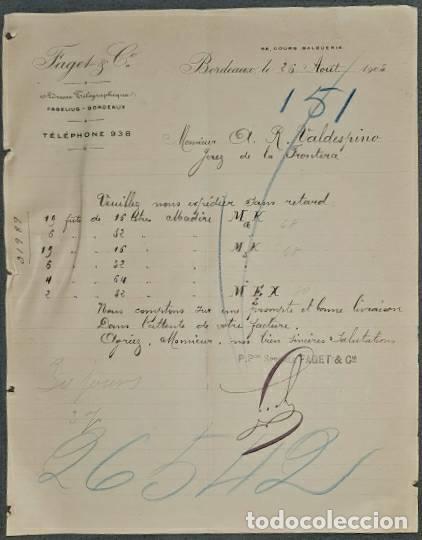 Faget & Cie
Adresse Télégraphique:
FAGELIUS-BORDEAUX
TÉLÉPHONE 938
COURS BALGUERIE
Bordeaux, le 25 Août 190
151
Monsieur A. R. Valdespino
Jerez de la Frontera
Veuillez nous expédier sans retard
fûts de 16 litres Madère M K
6 " " 32 " "
" " 16 " " M K
" " 32 " "
4 " " 64 " "
2 " " 32 " " M E X
Nous comptons sur une prompte et bonne livraison
Dans l'attente de votre facture,
Agréez, Monsieur, nos bien sincères salutations
FAGET & Cie
26542
todocoleccion.net